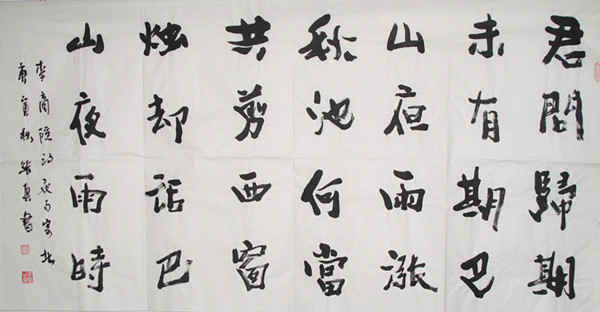 君問歸期
未有期巴
山夜雨漲
秋池何當
共剪西窗
烛却話巴
山夜雨時
李商隐诗夜雨寄北
庚寅秋
書